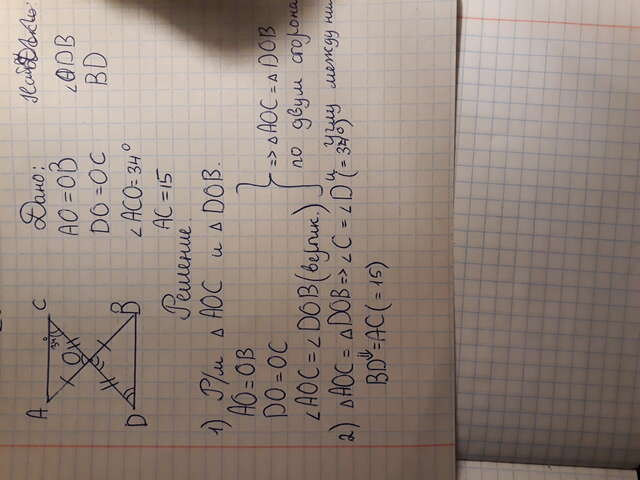 A
C
34°
O
D
B
Дано:
AO=OB
DO=OC
∠ACO=34°
AC=15
∠ADB
BD
Решение
1) Р/м △AOC и △DOB.
AO=OB
DO=OC
∠AOC=∠DOB (вертик.)
=> △AOC=△DOB
по двум сторона
и углу между ни
2) △AOC=△DOB=> ∠C=∠D (=34°)
BD=AC(=15)